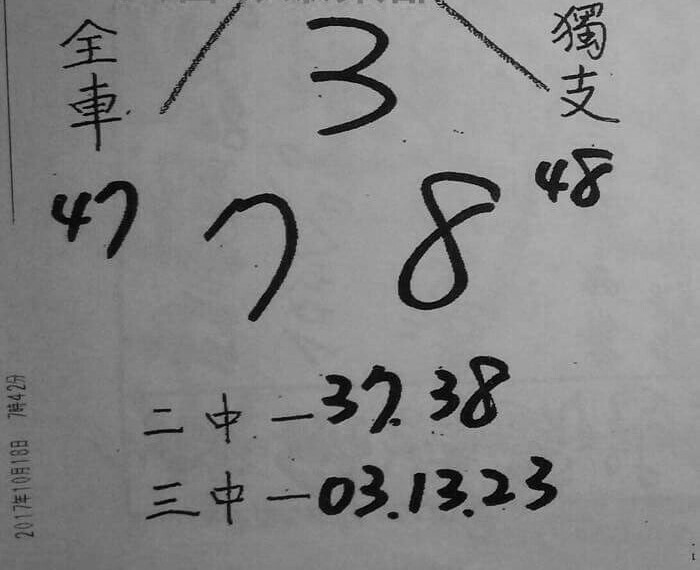 全車
3
獨支
47
7 8
48
二中一37.38
三中一03.13.23
2017年10月18日 7時42分